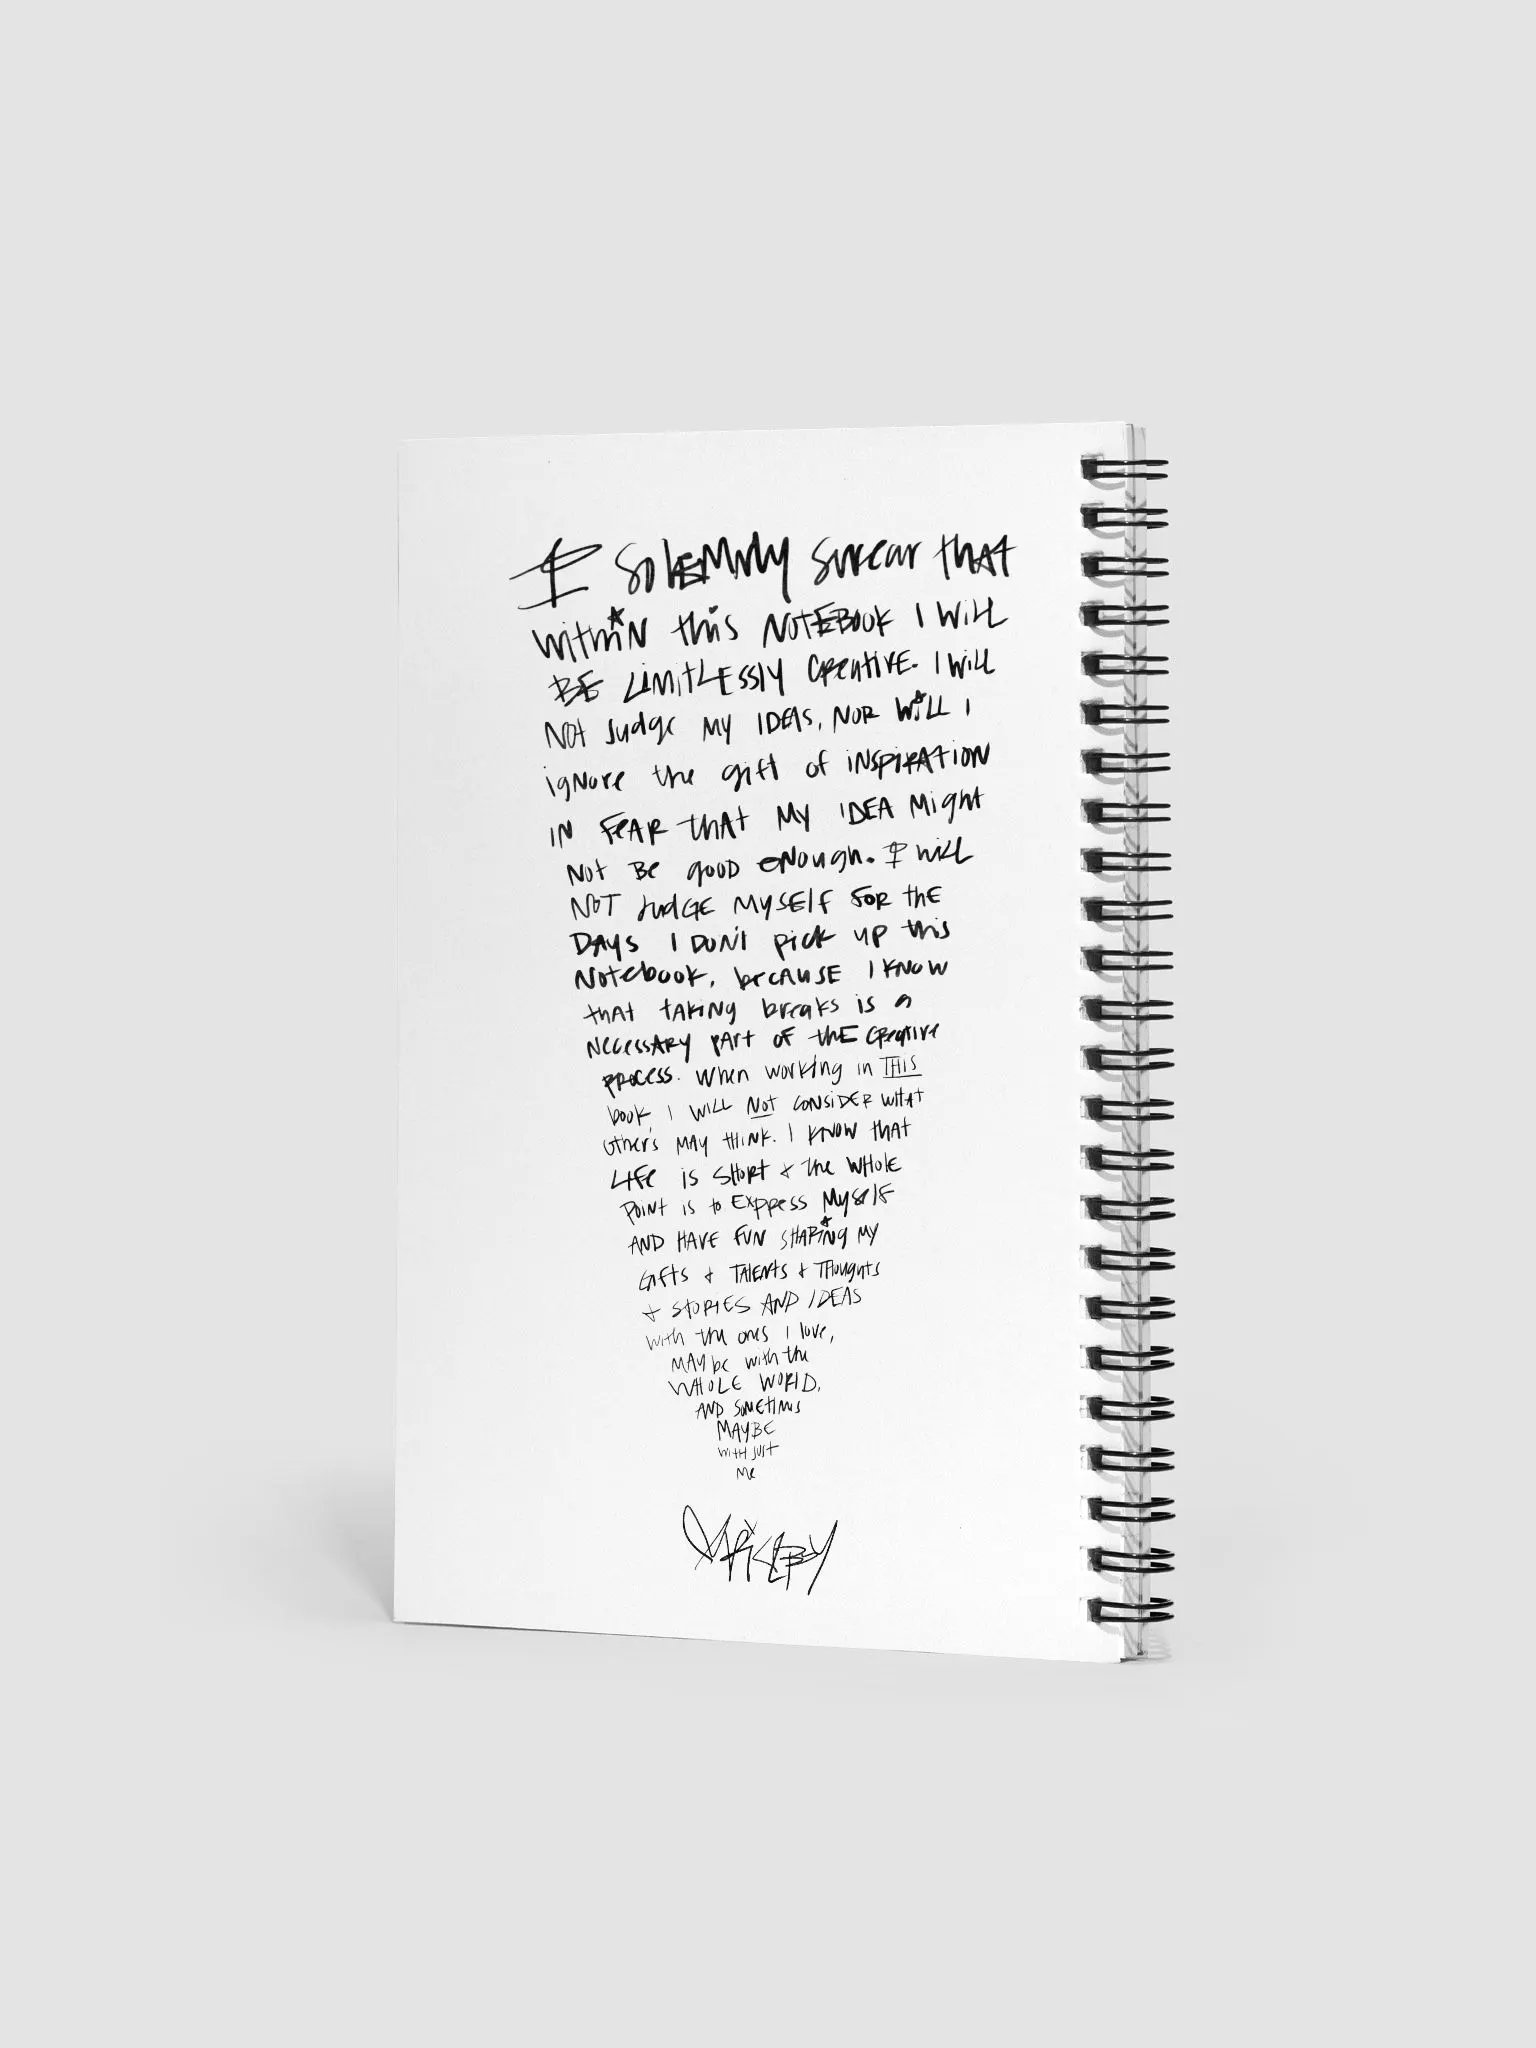 I SOLEMNLY swear that
within this NOTEBOOK I WILL
BE LIMITLESSLY CREATIVE. I WILL
NOT Judge MY IDEAS, NOR WILL I
ignore the gift of INSPIRATION
IN FEAR THAT MY IDEA Might
Not BE gOOD ENough. I WILL
NOT JUDGE MYSELF FOR the
DAYS I DON't pick up this
Notebook, becAUSE I KNOW
that TAKING breaks is a
NECESSARY PART OF THE CREATIVE
PROCESS. When working in THIS
book, I WILL NOT CONSIDER WHAT
other's MAY THINK. I KNOW that
LIFE is SHORT + the WHOLE
POINT is to EXPRESS MYSELF
AND HAVE FUN SHARING MY
GIFTS + TALENTS + THoughts
+ STORIES AND IDEAS
with the ones I love,
MAYbe with the
WHOLE WORLD,
AND SOMETIMES
MAYBE
WITH JUST
Me